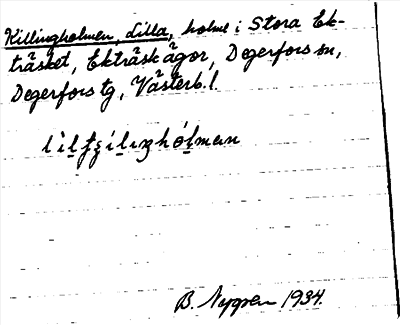 Killingholmen, Lilla, holme i Stora Ek-
träsket, Ekträsk ägor, Degerfors sn,
Degerfors tg, Västerb. l.
B. Nygren 1934.